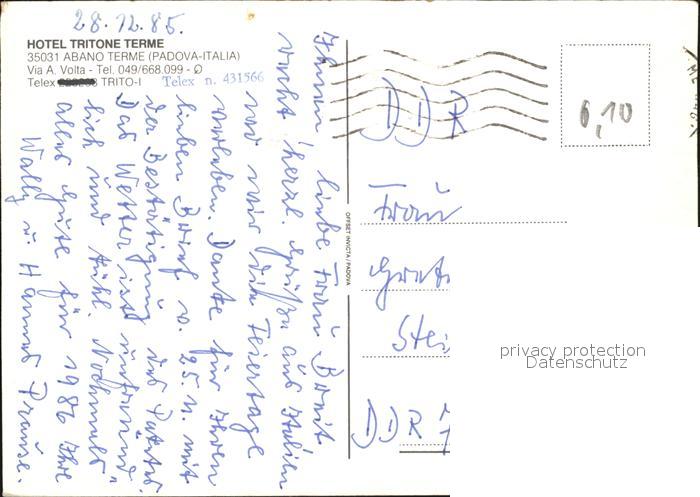 28.12.85.
HOTEL TRITONE TERME
35031 ABANO TERME (PADOVA-ITALIA)
Via A. Volta - Tel. 049/668.099 -
Telex TRITO-I Telex n. 431566
Ihnen liebe Frau
recht herzl. Grüße aus Italien
wo wir die Feiertage
verleben. Danke für Ihren
lieben Brief v. 25.11. mit
der Bestätigung des Patets.
Das Wetter ist unfreund-
lich und kühl. Nochmals
alles Gute für 1986 Ihre
Wally u. Hannes
OFFSET INVICTA / PADOVA
DDR
6,10
Frau
Stei
DDR
privacy protection
Datenschutz